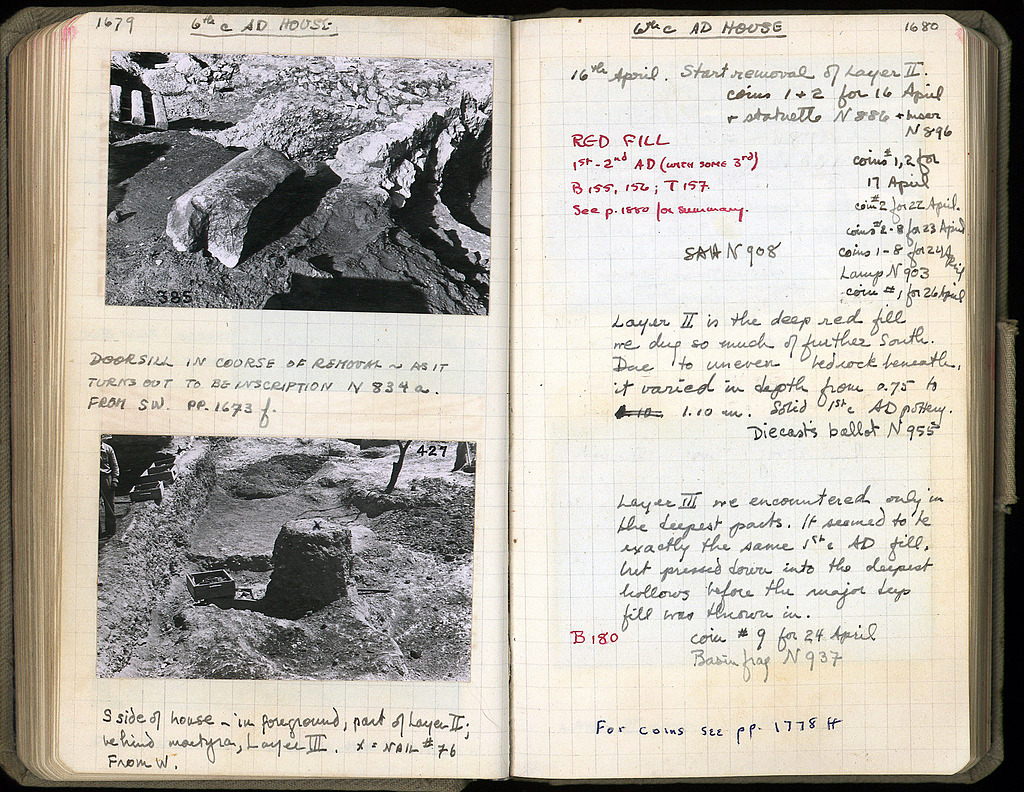 1679
6th c AD HOUSE
385
DOORSILL IN COURSE OF REMOVAL – AS IT
TURNS OUT TO BE INSCRIPTION N 834a.
FROM SW. PP. 1673 f.
427
x
S side of house – in foreground, part of Layer II;
behind martyra, Layer III. x = NAIL #76
From W.
6th c AD HOUSE
1680
16th April. Start removal of Layer II.
coins 1 + 2 for 16 April
+ statuette N 886 +
N 896
RED FILL
1st - 2nd AD (WITH SOME 3rd)
B 155, 156; T 157.
See p. 1880 for summary.
coins # 1, 2 for
17 April
coin #2 for 22 April.
coins # 2 - 8 for 23 April
coins 1 - 8 for 24 April
Lamp N 903
coin #1 for 26 April
SAH N 908
Layer II is the deep red fill
we dug so much of further South.
Due to uneven bedrock beneath,
it varied in depth from 0.75 to
1.10 m. Solid 1st c AD pottery.
Diecasts ballot N 955
Layer III we encountered only in
the deepest parts. It seemed to be
exactly the same 1st c AD fill,
but pressed down into the deepest
hollows before the major
fill was thrown in.
B 180
coin # 9 for 24 April
Basin frag N 937
For coins see pp. 1778 ff